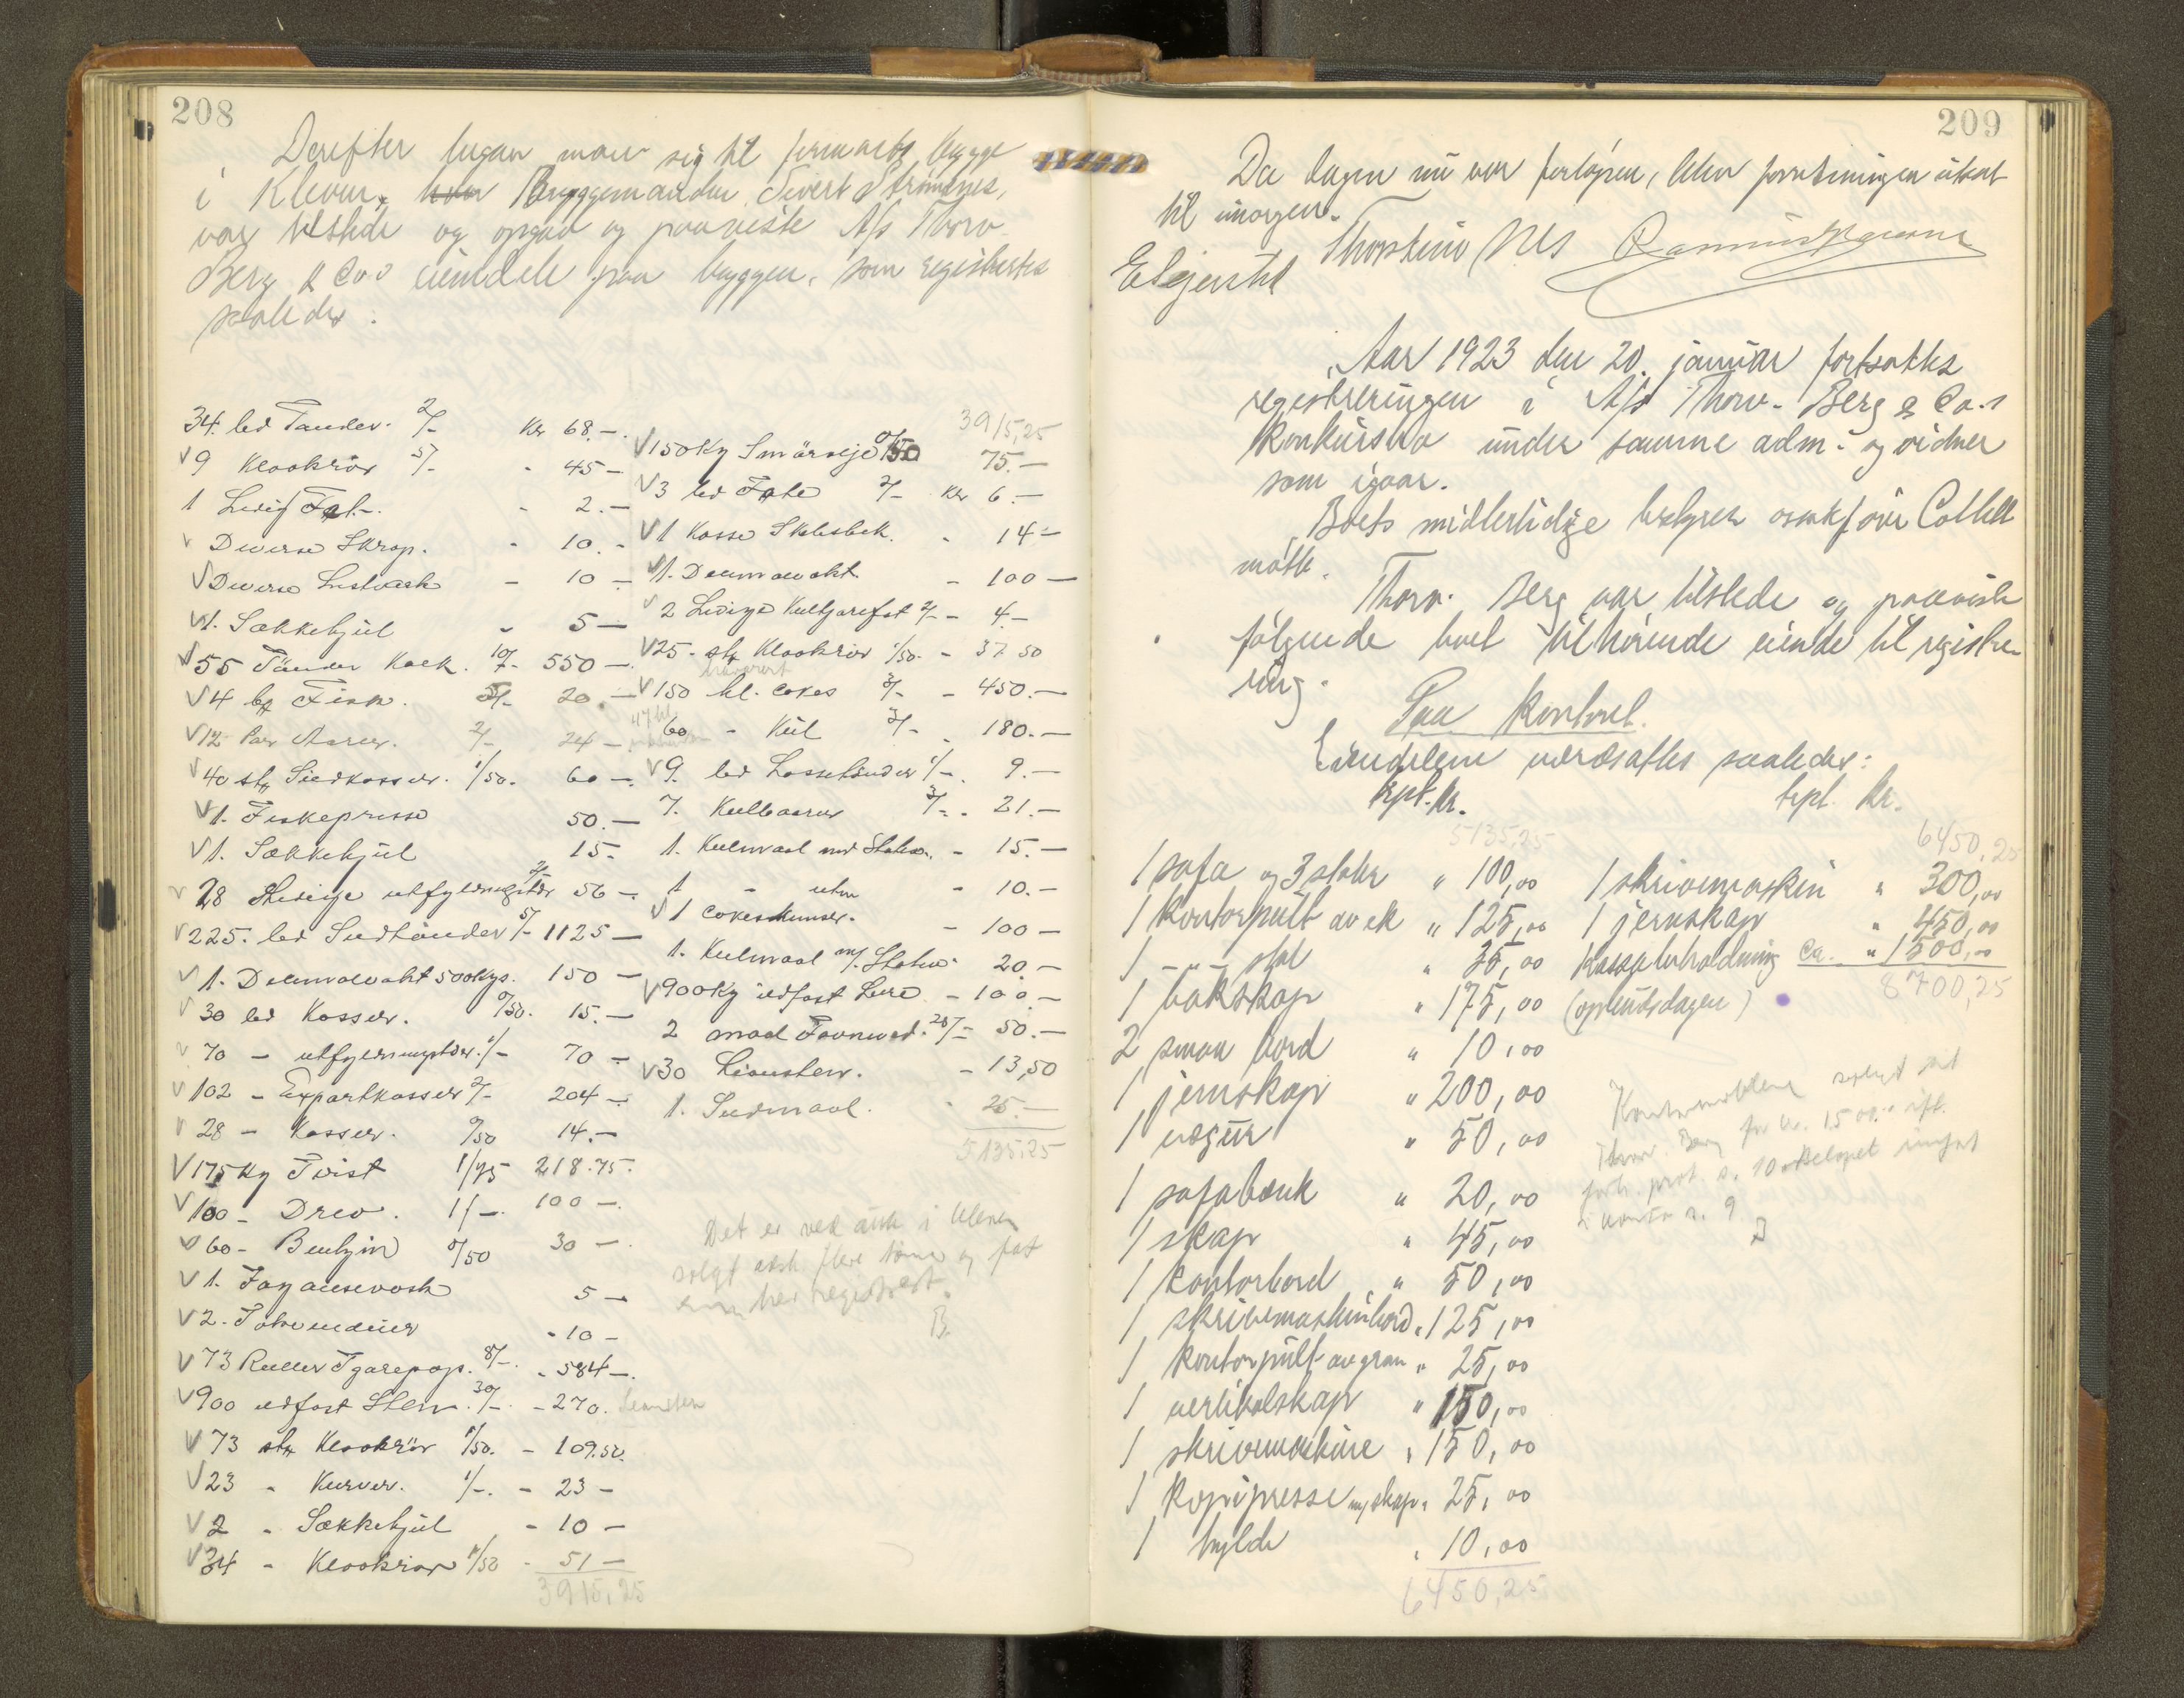 208
Derefter begav man sig til firmaets brygge
i Kleven, hvor Bryggemanden Sivert Strömsnes,
var tilstede og opgav og paaviste A/s Thorv.
Berg & Co.s eiendele paa bryggen, som registrertes
saaledes.
34. led Tønder. 2/- Kr 68.-
V 9 Klookrör 5/- - 45 -
1 Ledig Fat.- - 2.-
V Diverse Skrap. - 10.-
V Diverse - 10 -
V 1. Sækkehjul - 5 -
V 55 Tönder Kalk. 10/- 550 -
V 4 Fisk. 5/- 20.-
V 12 Par Aarer. 2/- 24 -
V 40 stk Sildkasser. 1/50. 60 -
V 1. Fiskepresse 50.-
V 1. Sækkehjul 15-
V 28 Ledige utfyldningstdr 2/- 56 -
V 225. led Sildtönder 5/- 1125 -
V 1. Decimalvekt 500kgs. 150 -
V 30 led Kasser. 0/50. 15.-
V 70 - utfyldningstdr. 1/- 70 -
V 102 - Exportkasser 2/- 204 -
V 28 - Kasser. 0/50 14.-
V 175 kg Tvist 1/25 218.75.
V 100 - Drev. 1/-. 100 -
V 60 - Benzin 0/50 30 -
V 1. Fayansevask 5 -
V 2. - 10 -
V 73 Ruller Tjarepap. 8/-. - 584 -.
V 900 ildfast Sten. 30/- - 270.
V 73 stk Klookrör 1/50. - 109.50.
V 23 - Kurver. 1/-. - 23 -
V 2 - Sækkehjul - 10 -
V 34 - Klookrör 1/50 - 51 -
3915,25
3915,25
V 150 kg Smörolje 0/50 75.-
V 3 led Fate 2/- Kr 6.-
V 1 Kasse Skibsbek. - 14 -
V 1. Decimalvekt - 100 -
V 2 Ledige Kultjarefat 2/- - 4.-
V 25 - stk Klookrör 1/50. - 37 50
V 150 hl. Cokes 3/- - 450.-
60 - Kul 3/- - 180.-
V 9. led Lossetönder 1/-. 9.-
7. Kulbaarer 3/-. 21.-
1. Kulmaal med Stativ. - 15.-
1 - uten - 10.-
V 1 Cokesknuser. - 100 -
1. Kulmaal m/. Stativ. 20.-
V 900 kg ildfast Leire - 100.-
2 maal Favnved. 25/- 50.-
V 30 - 13,50
1. Sildmaal. - 25.-
5135,25
Det er ved auk. i Kleven
solgt adsk. flere tönner og fat
enn her registrert.
B.
209
Da dagen nu var forløpen, blev forretningen utsat
til imorgen.
Elgjerstad Thorstein Nes
Aar 1923 den 20. januar fortsattes
registreringen i A/s Thorv. Berg & Co.s
konkursbo under samme adm. og vidner
som igaar.
Boets midlertidige bestyrer o.sakfører Collett
møtte.
Thorv. Berg var tilstede og paaviste
følgende boet tilhørende eiendele til registre-
ring.
Paa kontoret.
Eiendelene værdsattes saaledes:
trpl. kr. trpl. kr.
5135,25
1 sofa og 3 stoler " 100,00
1 kontorpult av ek " 125,00
1 - " - stol " 35,00
1 bokskap " 175,00
2 smaa bord " 10,00
1 jernskap " 200,00
1 vægur " 50,00
1 sofabænk " 20,00
1 skap " 45,00
1 kontorbord " 50,00
1 skrivemaskinbord " 125,00
1 kontorpult av gran " 25,00
1 vertikalskap " 150,00
1 skrivemaskine " 150,00
1 kopipresse m/skap " 25,00
1 hylde " 10,00
6450,25
6450,25
1 skrivemaskin " 300,00
1 jernskap " 450,00
Kassabeholdning ca. " 1500,00
(opbudsdagen) 8700,25
Kontormöblene solgt til
Thorv. Berg for kr. 1500.00 ifl.
forh. prot. s. 10 Belöpet inngaat
i konto s. 9